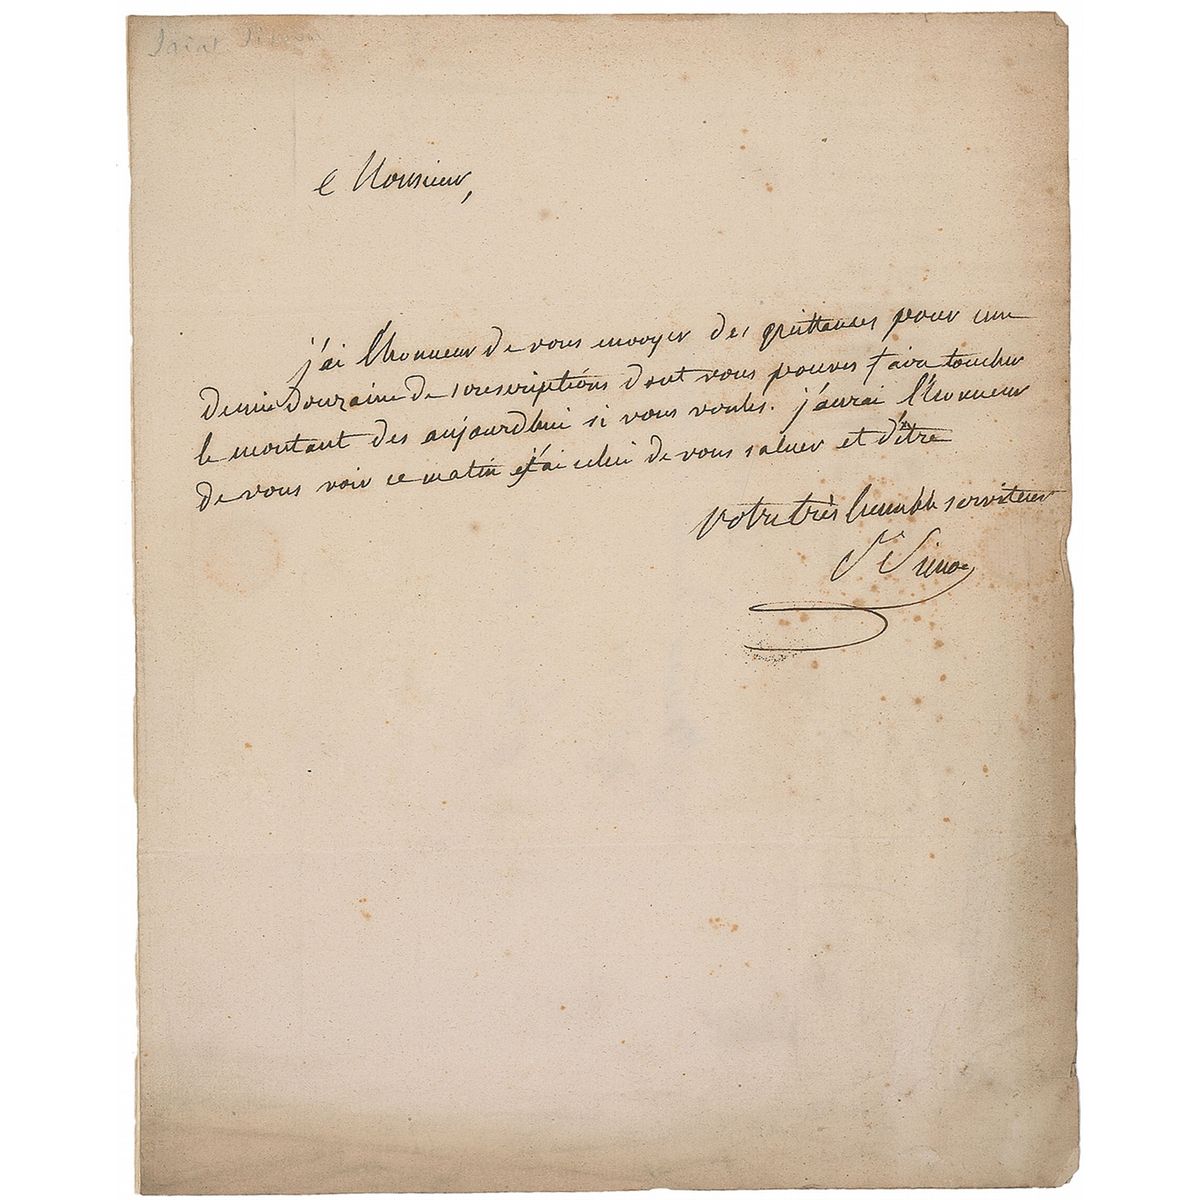 Saint Simon
Monsieur,
j'ai l'honneur de vous envoyer des quittances pour une
demie douzaine de souscriptions dont vous pouves faire toucher
le montant des aujourdhui si vous voules. j'aurai l'honneur
de vous voir ce matin et j'ai celui de vous saluer et d'être
votre très humble serviteur
St Simon